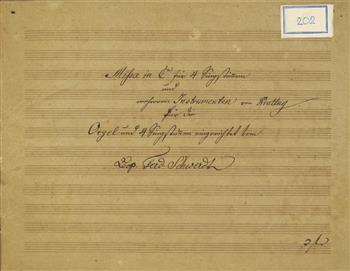 202
Missa in C für 4 Singstimmen
und
mehreren Instrumenten von
für die
Orgel und 4 Singstimmen eingerichtet von
Leop. Ferd. Schwerdt